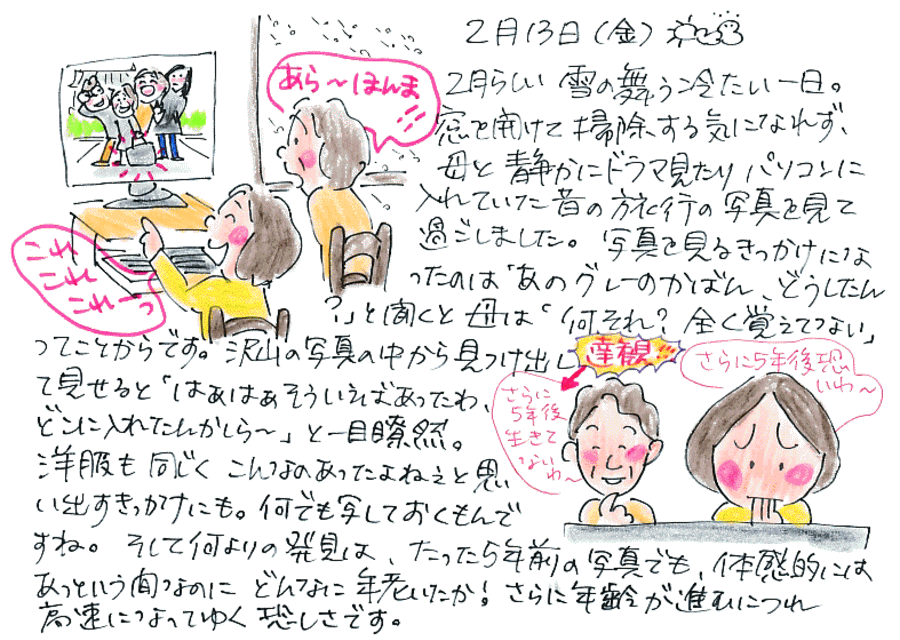 2月13日(金)
あら〜ほんま
2月らしい 雪の舞う冷たい一日。
窓を開けて掃除する気になれず、
母と静かにドラマ見たり パソコンに
入れていた昔の旅行の写真を見て
過ごしました。 写真を見るきっかけにな
ったのは「あのグレーのかばん、どうしたん
?」と聞くと 母は「何それ? 全く覚えてない」
ってことからです。沢山の写真の中から見つけ出し
て見せると「はぁはぁそういえばあったわ、
どこに入れたんかしら〜」と一目瞭然。
洋服も同じく こんなのあったよねぇと思
い出すきっかけにも。何でも写しておくもんで
すね。 そして何よりの発見は、たった5年前の写真でも、体感的には
あっという間なのに どんなに年老いたか! さらに年齢が進むにつれ
高速になってゆく恐しさです。
これ
これ
これーっ
達観!!!
さらに
5年後
生きて
ないわ〜
さらに5年後恐
いわ〜